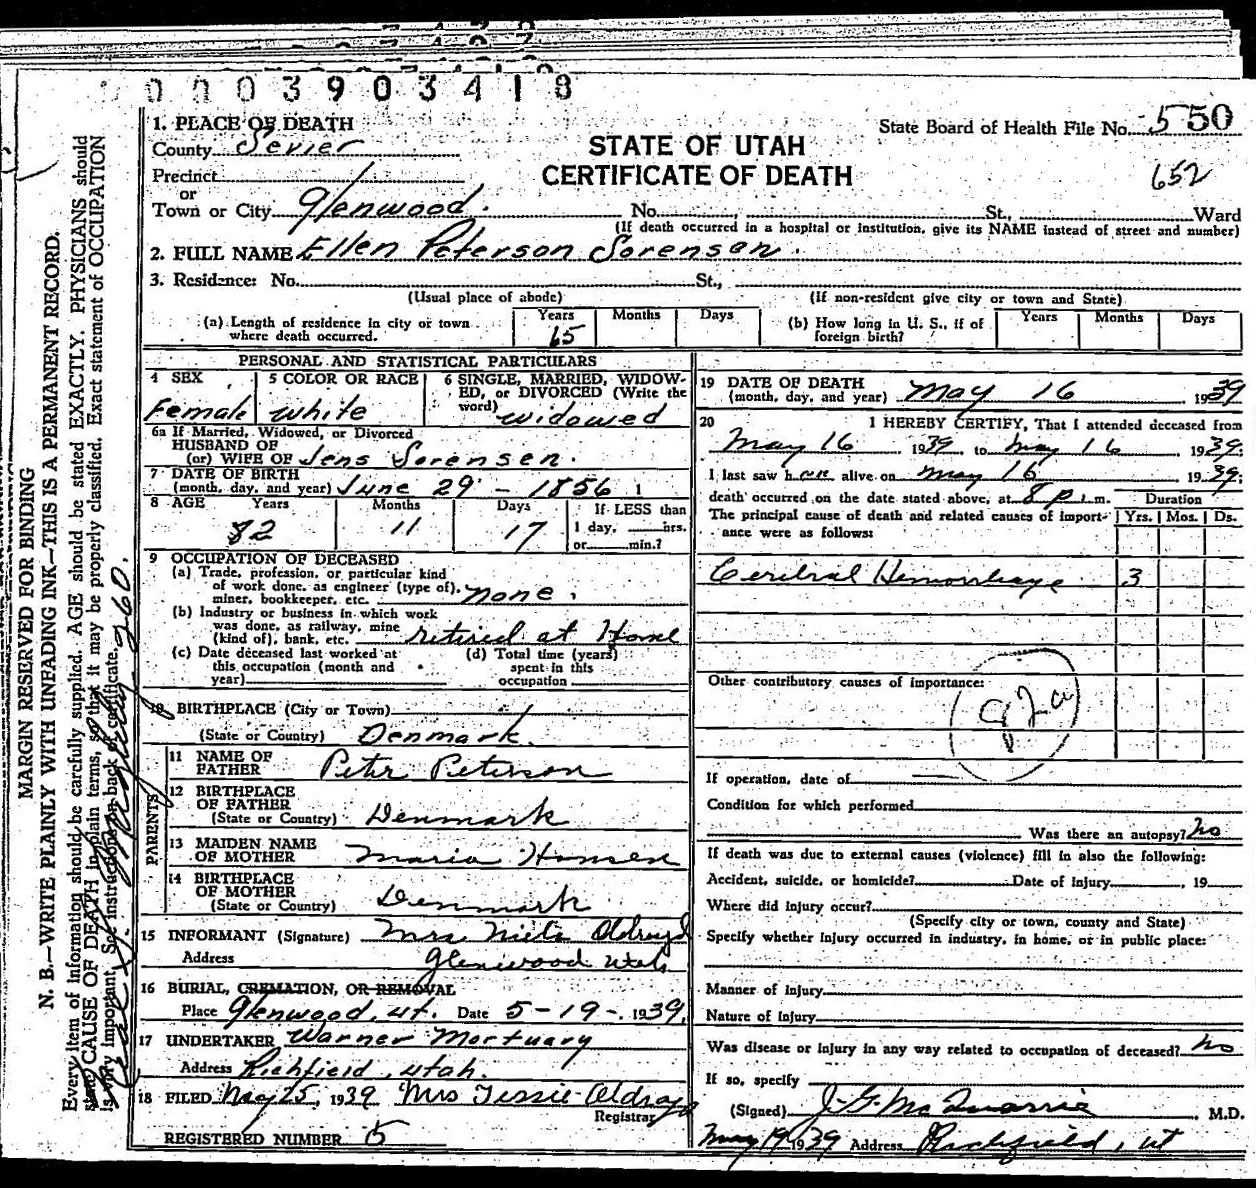 0 0 0 3 9 0 3 4 1 8
State Board of Health File No. 550
652
STATE OF UTAH
CERTIFICATE OF DEATH
1. PLACE OF DEATH
County Sevier
Precinct
or
Town or City Glenwood. No. St., Ward
(If death occurred in a hospital or institution, give its NAME instead of street and number)
2. FULL NAME Ellen Peterson Sorensen.
3. Residence: No. St.,
(Usual place of abode) (If non-resident give city or town and State)
(a) Length of residence in city or town where death occurred. Years 65 Months Days
(b) How long in U. S., if of foreign birth? Years Months Days
PERSONAL AND STATISTICAL PARTICULARS
4 SEX Female
5 COLOR OR RACE white
6 SINGLE, MARRIED, WIDOWED, or DIVORCED (Write the word) widowed
6a If Married, Widowed, or Divorced
HUSBAND OF
(or) WIFE OF Jens Sorensen.
7 DATE OF BIRTH
(month, day, and year) June 29 - 1856
8 AGE Years 82 Months 11 Days 17 If LESS than
1 day, hrs.
or min.?
9 OCCUPATION OF DECEASED
(a) Trade, profession, or particular kind
of work done, as engineer (type of),
miner, bookkeeper, etc. none.
(b) Industry or business in which work
was done, as railway, mine
(kind of), bank, etc. retired at Home
(c) Date deceased last worked at
this occupation (month and
year)
(d) Total time (years)
spent in this
occupation
10 BIRTHPLACE (City or Town)
(State or Country) Denmark.
PARENTS
11 NAME OF
FATHER Peter Peterson
12 BIRTHPLACE
OF FATHER
(State or Country) Denmark
13 MAIDEN NAME
OF MOTHER Maria Hansen
14 BIRTHPLACE
OF MOTHER
(State or Country) Denmark
15 INFORMANT (Signature) Mrs Oldroyd
Address Glenwood Utah
16 BURIAL, CREMATION, OR REMOVAL
Place Glenwood, ut. Date 5-19-. 1939.
17 UNDERTAKER Warner Mortuary
Address Richfield, Utah.
18 FILED May 25, 1939 Mrs Tessie Oldroyd
Registrar
REGISTERED NUMBER 5
19 DATE OF DEATH
(month, day, and year) May 16 1939
20 I HEREBY CERTIFY, That I attended deceased from
May 16 1939 to May 16 1939.
I last saw her alive on May 16 1939;
death occurred on the date stated above, at 8 p. m. Duration
The principal cause of death and related causes of importance were as follows: Yrs. Mos. Ds.
Cerebral Hemorrhage 3
Other contributory causes of importance:
82a
If operation, date of
Condition for which performed
Was there an autopsy? no
If death was due to external causes (violence) fill in also the following:
Accident, suicide, or homicide? Date of injury , 19
Where did injury occur?
(Specify city or town, county and State)
Specify whether injury occurred in industry, in home, or in public place:
Manner of injury
Nature of injury
Was disease or injury in any way related to occupation of deceased? no
If so, specify
(Signed) J. G. McQuarrie , M.D.
May 19 1939 Address Richfield, ut
MARGIN RESERVED FOR BINDING
N. B.—WRITE PLAINLY WITH UNFADING INK—THIS IS A PERMANENT RECORD.
Every item of information should be carefully supplied. AGE should be stated EXACTLY. PHYSICIANS should
state CAUSE OF DEATH in plain terms, so that it may be properly classified. Exact statement of OCCUPATION
is very important. See instructions on back of certificate.